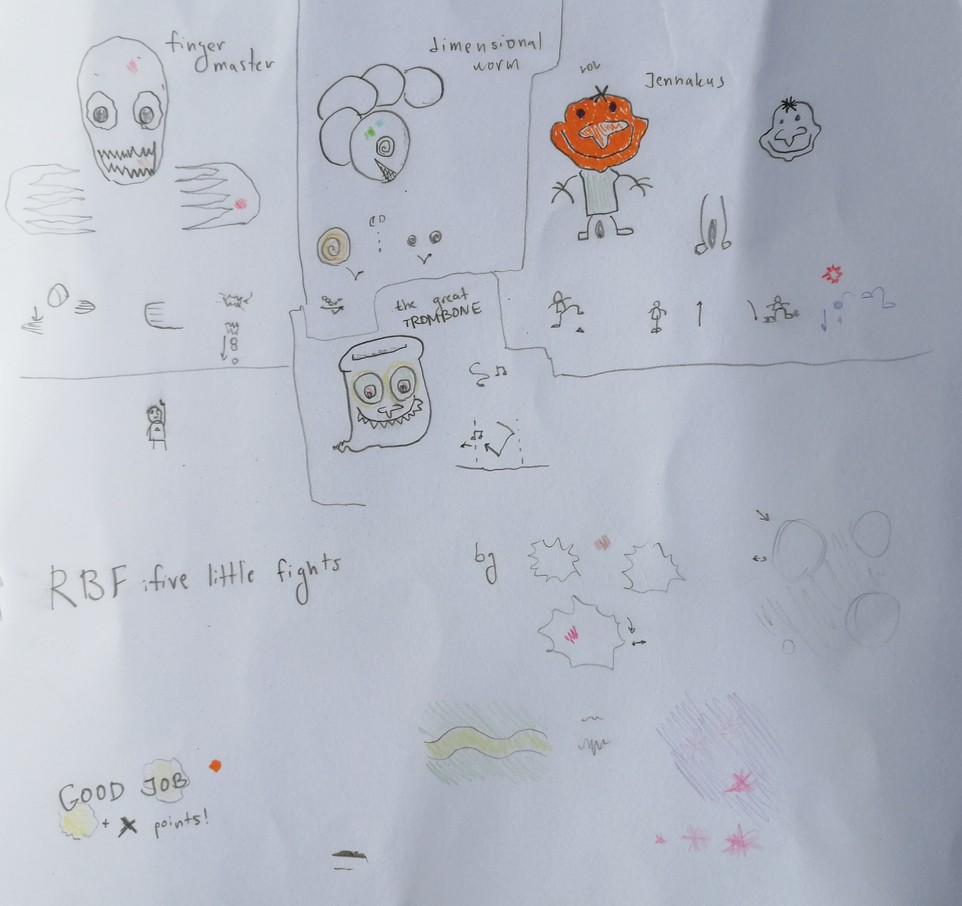 finger
master
dimensional
worm
LOL
Jennakus
the great
TROMBONE
RBF : five little fights
bg
GOOD JOB
+ X points!